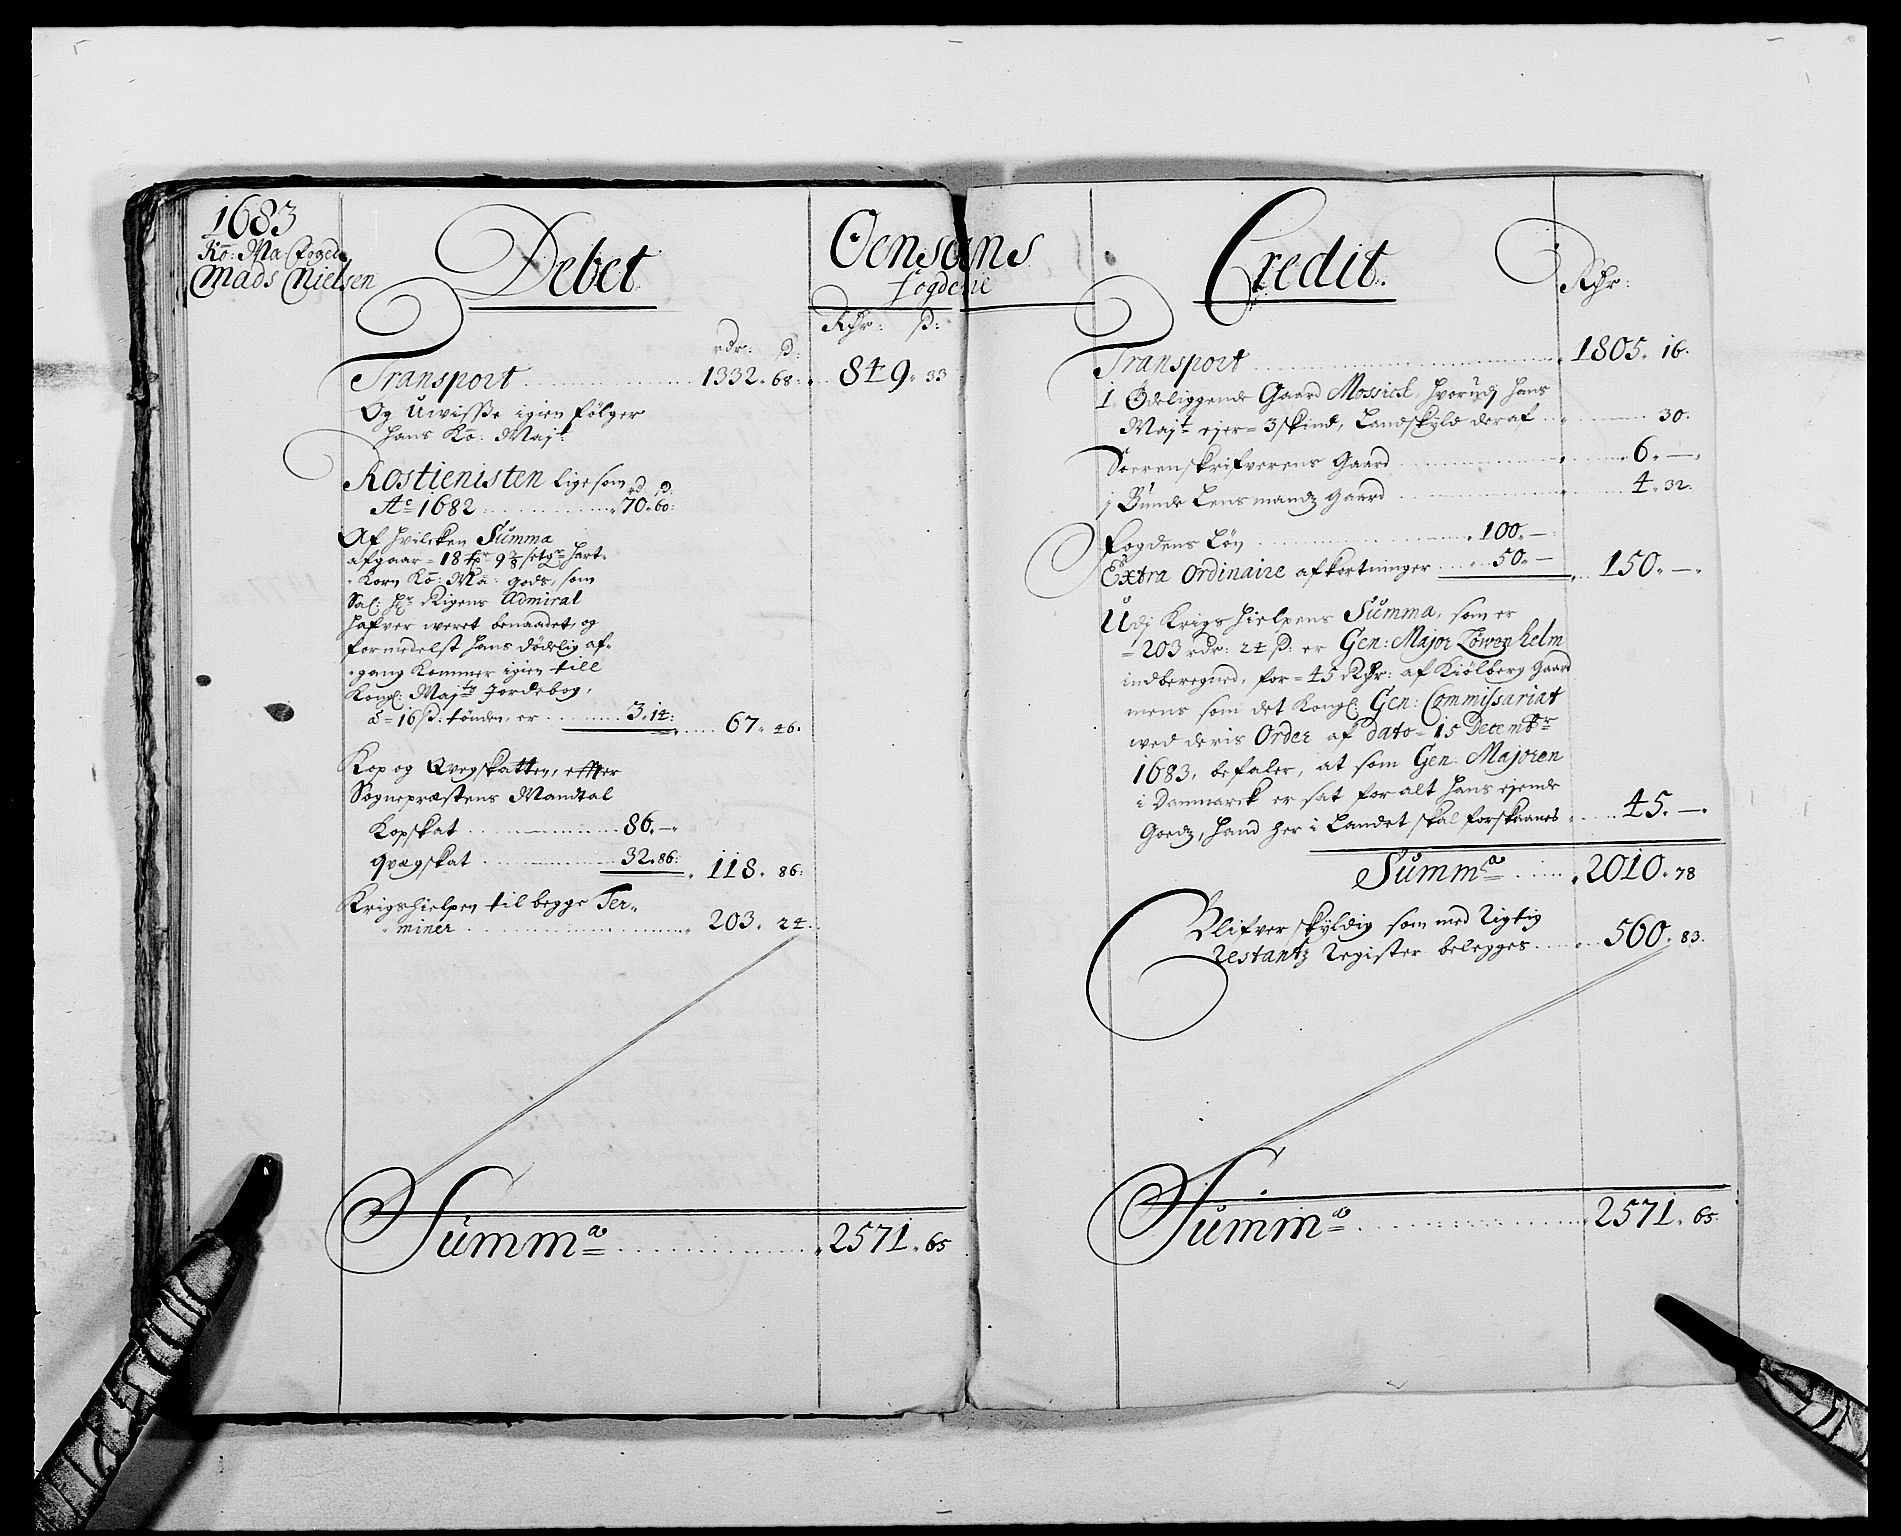 1683
Kō: Ma: Foged
Mads Nielsen
Debet
Oensøens
Fogderie
Rdr: ß:
rdr: ß:
Transport 1332. 68. 849. 33
Og Uwisse igien følger
Hans Kō: Majt:
Rostienisten ligesom rd ß:
Ao 1682 70. 60:
Af hvilcken Summa
afgaar = 18 tr 9 3/8 setgr hart-
Korn Kō: Ma: gods, som
Sal: Hr Rigens Admiral
hafver weret benaadet, og
formedelst hans dødelig af-
gang Kommer igien till
Kongl: Majts Jordebog,
à = 16 ß: tønden, er 3. 14:
67. 46.
Kop og Qvegskatten, effter
Sognepræstens Mandtal
Kopskat 86. —
qvægskat 32. 86:
118. 86:
Krigshielpen til begge Ter-
miner 203. 24.
Summa 2571. 65
Credit
Rdr:
Transport 1805. 16.
1 Ødeliggende Gaard Mossich, hvorudj hans
Majt ejer = 3 skind, Landskyld deraf 30.
Sorenskrifverens Gaard 6. —
j Bunde Lensmandz Gaard 4. 32.
Fogdens Løn 100. —
Extra Ordinaire afkortninger 50. — 150. —
Udj Krigshielpens Summa, som er
203 rdr: 24 ß: er Gen: Major Löwenhelm
indberegned, for = 45 Rdr: af Kiølberg Gaard
mens som det Kongl: Gen: Commissariat
wed deris Order af dato = 15 Decembr
1683, befaler, at som Gen: Majoren
i Danmarck er sat for alt hans ejende
Goedz, hand her i Landet skal forskaanes 45. —
Summa 2010. 78
Blifver skyldig som med Rigtig
Restantz Register belegges 560. 83.
Summa 2571. 65